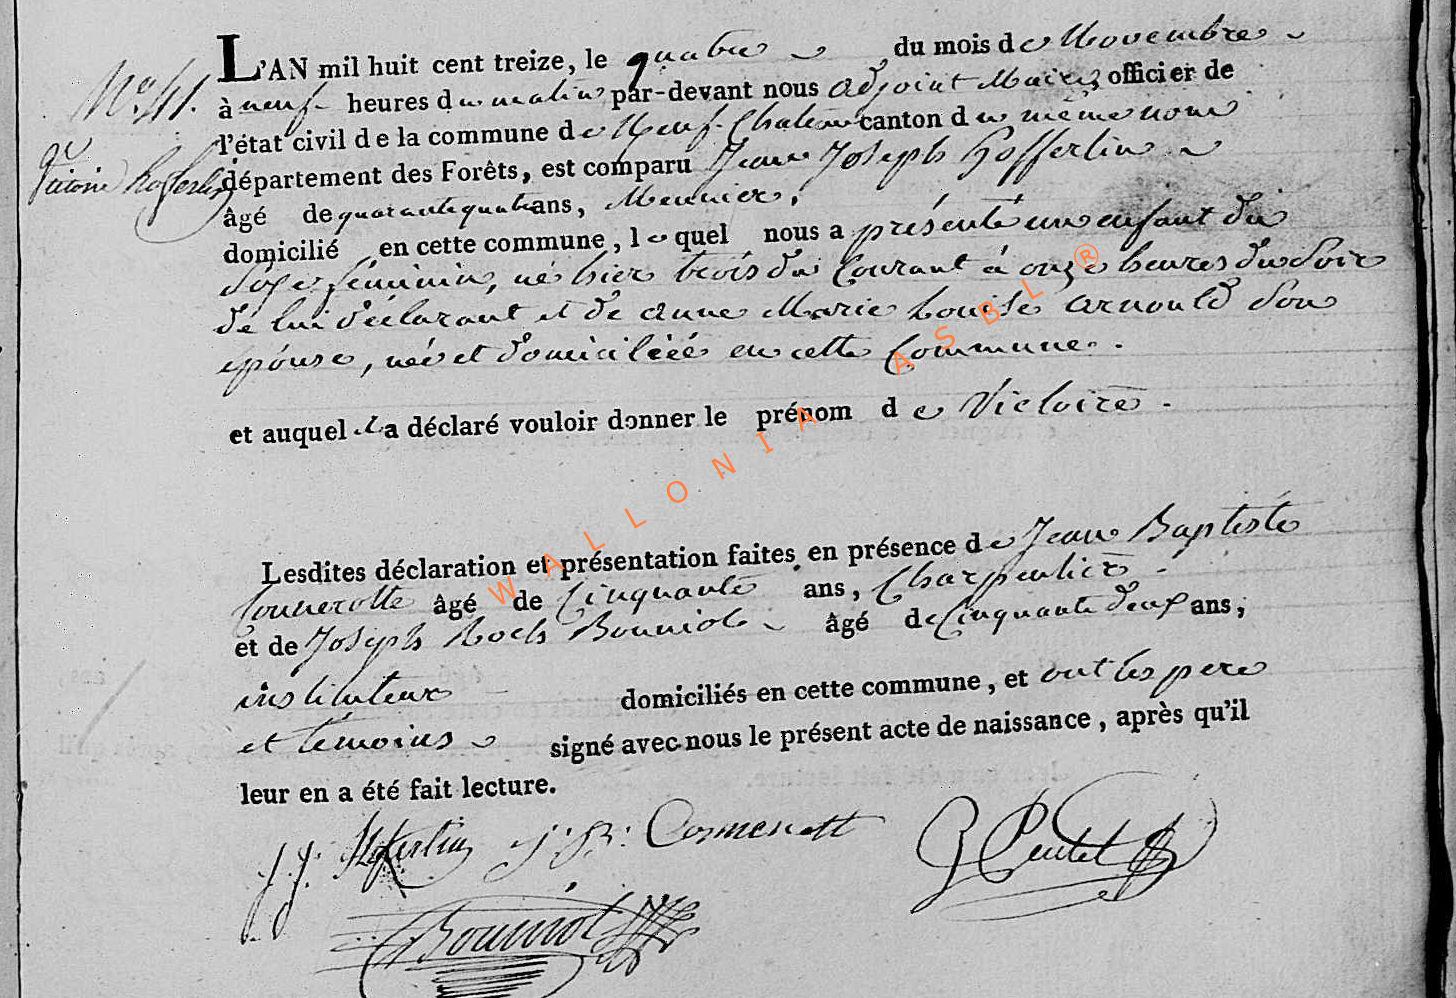 L'AN mil huit cent treize, le quatre du mois de Novembre
N.° 41. à neuf heures du matin par-devant nous adjoint Maire, officier de
l'état civil de la commune de Neuf-Chateau canton du même nom
département des Forêts, est comparu Jean Joseph Hofferlin
Victoire Hofferlin
âgé de quarante quatre ans, Meunier,
domicilié en cette commune, lequel nous a présenté un enfant du
Sexe féminin, né hier trois du Courant à onze heures du Soir
de lui déclarant et de anne Marie Louise arnould Son
épouse, née et domiciliée en cette Commune.
et auquel il a déclaré vouloir donner le prénom de Victoire.
Lesdites déclaration et présentation faites en présence de Jean Baptiste
âgé de Cinquante ans, Charpentier
et de Joseph Roch Bourniol âgé de Cinquante deux ans,
instituteur domiciliés en cette commune, et ont les pere
et témoins signé avec nous le présent acte de naissance, après qu'il
leur en a été fait lecture.
J. J. Hoferlin J. B.
Bourniol
WALLONIA ASBL ®